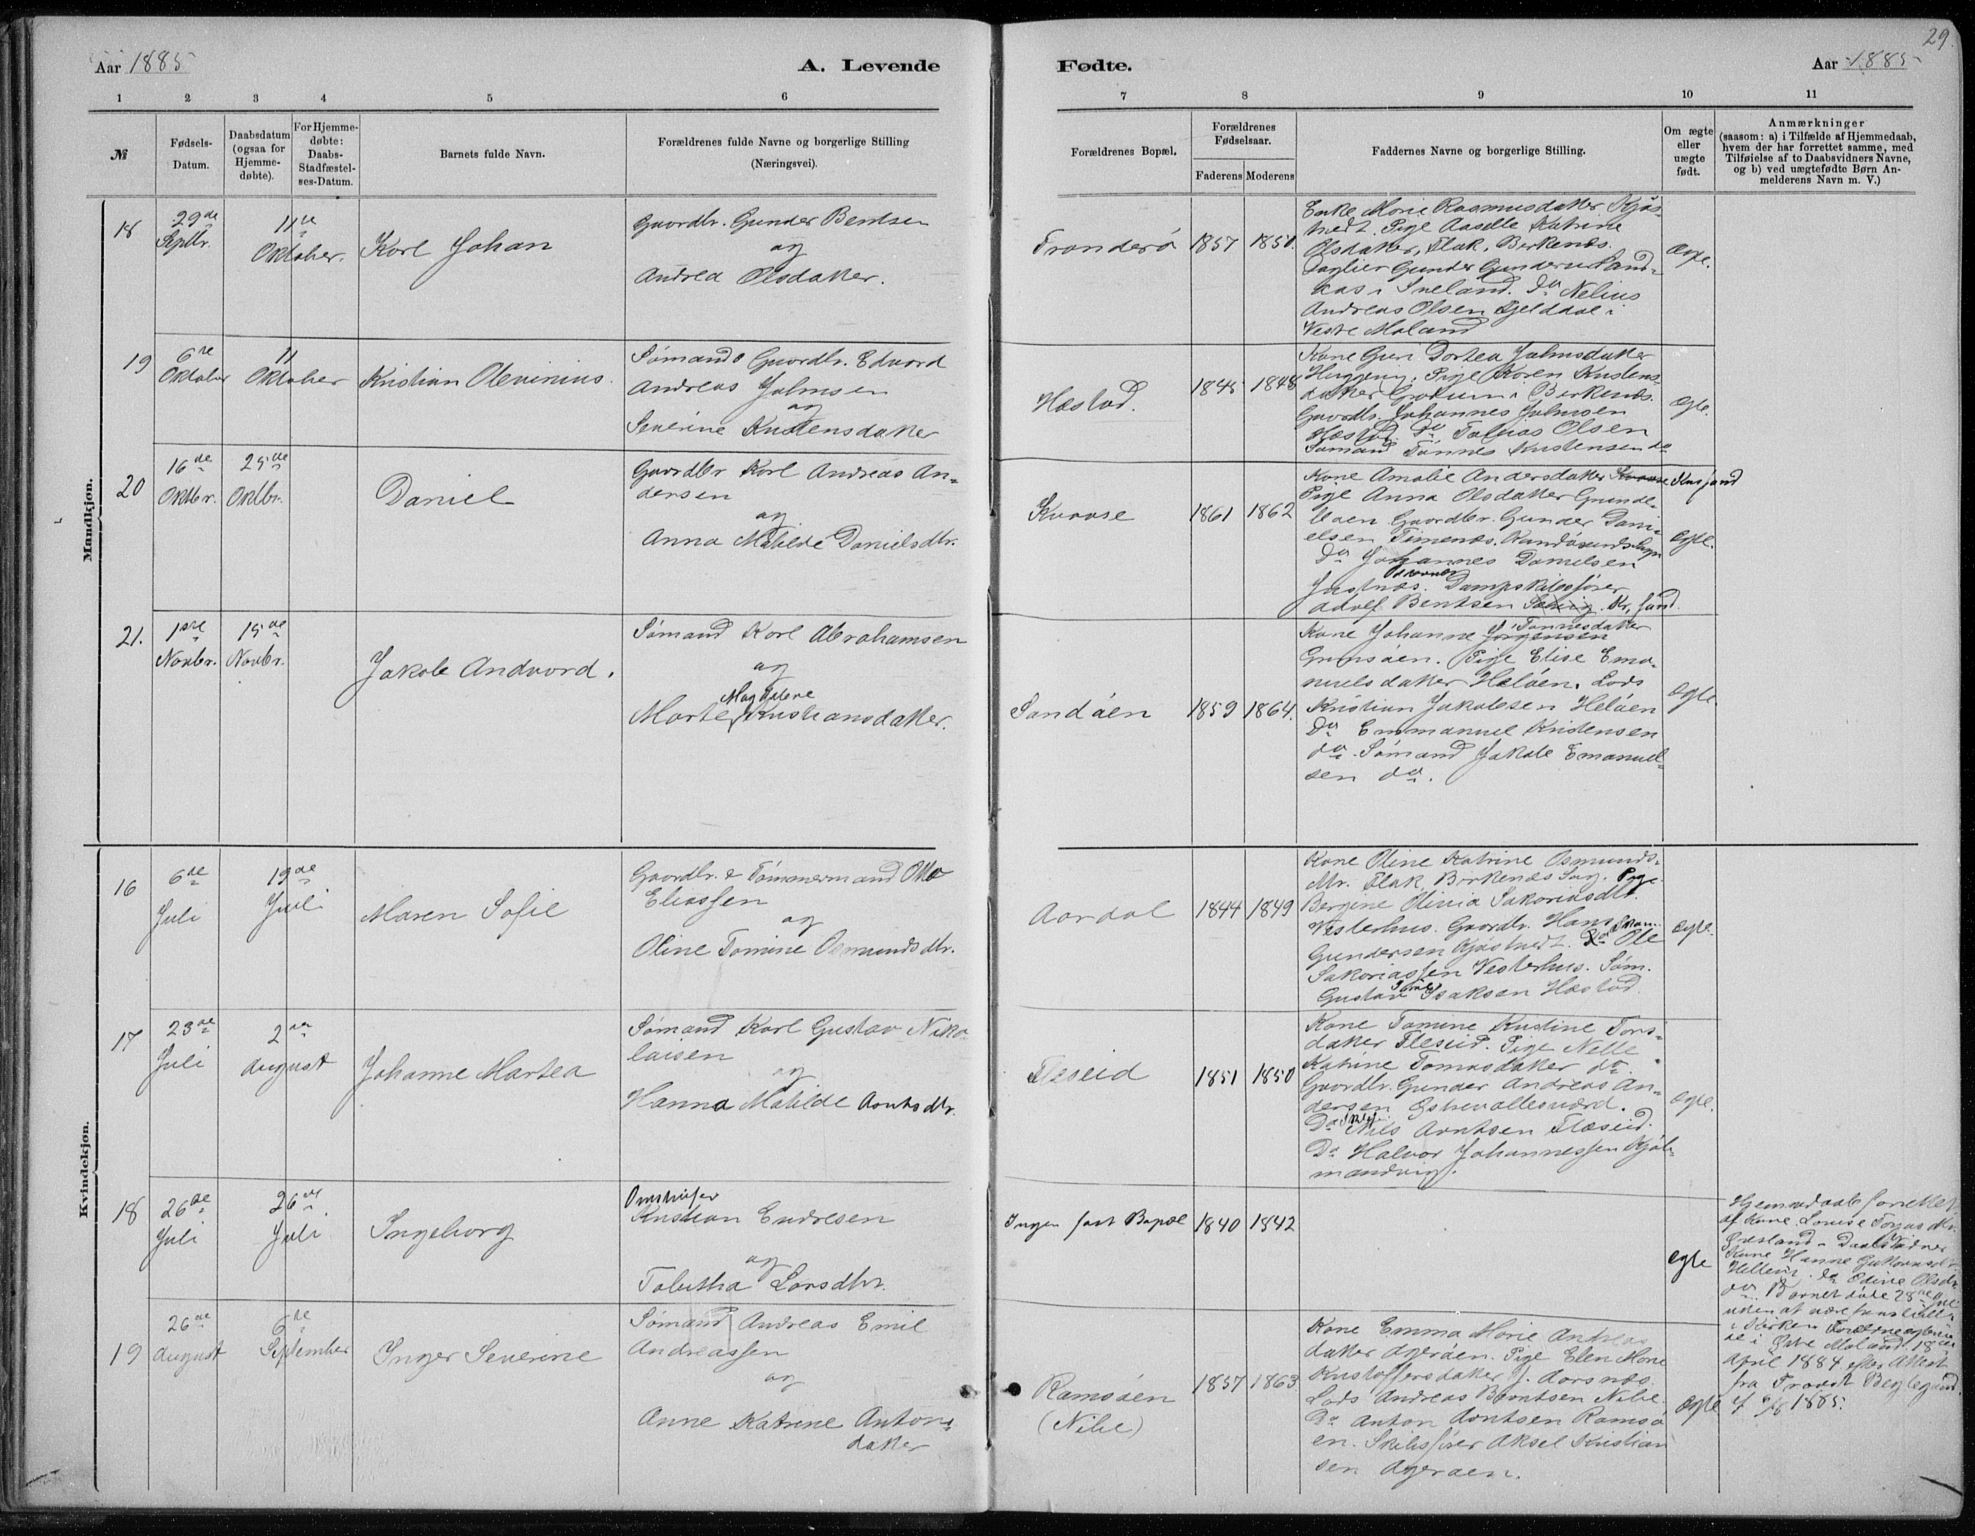 29.
Aar 1885
A. Levende
Fødte.
Aar 1885
1 2 3 4 5 6
7 8 9 10 11
№
Fødsels-
Datum.
Daabsdatum
(ogsaa for
Hjemme-
døbte).
For Hjemme-
døbte:
Daabs-
Stadfæstel-
ses-Datum.
Barnets fulde Navn.
Forældrenes fulde Navne og borgerlige Stilling
(Næringsvei).
Forældrenes Bopæl.
Forældrenes
Fødselsaar.
Faderens Moderens
Faddernes Navne og borgerlige Stilling.
Om ægte
eller
uægte
født.
Anmærkninger
(saasom: a) i Tilfælde af Hjemmedaab,
hvem der har forrettet samme, med
Tilføielse af to Daabsvidners Navne,
og b) ved uægtefødte Børn An-
melderens Navn m. V.)
Mandkjøn.
18
29de
Septbr.
11te
Oktober.
Karl Johan
Gaardbr. Gunder Bentsen
og
Andrea Olsdatter.
Tronderø
1857
1850.
Enke Marie Rasmusdatter Kjøs-
tvedt. Pige Aaselle Katrine
Olsdatter, Flak, Birkenæs.
Gunder
i Iveland. Do Nelius
Andreas Olsen Fjeldaal i
Vestre Moland
ægte.
19
6te
Oktober
11
Oktober
Kristian Olevinius.
Sømand & Gaardbr. Edvard
Andreas Jalmsen
og
Severine Kristensdatter
Hæstad.
1845
1848
Kone Guri Dortea Jalmsdatter
Pige Karen Kristens-
datter i Birkenæs.
Gaardbr. Johannes Jalmsen
Hæstad. Do Tobias Olsen
Sømand Tønnes Kristensen do
ægte.
20
16de
Oktbr.
25de
Oktbr.
Daniel
Gaardbr Karl Andreas An-
dersen
og
Anna Matilde Danielsdtr.
Kvaase
1861
1862
Kone Amalie Andersdatter
Pige Anna Olsdatter Grunde-
Gaardbr. Gunder Dani-
elsen Timenæs. Randøsunds Sogn
Do Johannes Danielsen
Justnæs. Dampskibsfører
Adolf Bentsen Kr. sand.
ægte.
21.
1ste
Novbr.
15de
Novbr.
Jakob Andvord.
Sømand Karl Abrahamsen
og
Magdalene
Marte Kristiansdatter.
Sandøen
1859
1864.
Tønnesdatter
Kone Johanne Jørgensen
Grimsøen. Pige Elise Ema-
nuelsdatter Heløen. Lods
Kristian Jakobsen Heløen
Do Emmanuel Kristensen
do. Sømand Jakob Emanuel-
sen do.
ægte.
Kvindekjøn.
16
6de
Juli
19de
Juli
Maren Sofie
Gaardbr. & Tømmermand Otto
Eliassen
og
Oline Tomine Osmundsdtr.
Aardal
1844
1849
Kone Oline Katrine Osmunds-
dtr. Flak, Birkenæs Sog. Pige
Bergine Olivia Sakariasdtr.
Vesterhus. Gaardbr. Hans
Gundersen Kjøstvedt. Do Ole
Sakariassen Vesterhus. Søm.
Gustav Isaksen Hæstad.
ægte.
17
23de
Juli
2den
august
Johanne Martea
Sømand Karl Gustav Niko-
laisen
og
Hanna Matilde Arntsdtr.
Fleseid
1851
1850
Kone Tomine Kristine Tors-
datter Fleseid. Pige Nelle
Katrine Tomasdatter do.
Gaardbr. Gunder Andreas An-
dersen Østrevallesværd.
Do Nils Arntsen Flæseid.
Do Halvor Johannessen Kjøb-
mandsvig.
ægte.
18
26de
Juli
26de
Juli
Ingeborg
Omstreifer
Kristian Endresen
og
Tabitha Larsdtr.
Ingen fast Bopæl
1840
1842
ægte
Hjemmedaab forrettet
af Kone Louise
Daabsvidner
Kone Hanne
Do Edine Olsdtr
do. Barnet døde 28de Juli
uden at være fremstillet
i Kirken. Forældrene
i Østre Moland 18de
April 1884 efter Attest
fra Provst
1885.
19
26de
august
6te
September
Inger Severine
Sømand Andreas Emil
Andreassen
og
Anne Katrine Anton-
datter
Ramsøen
(Nibe)
1857
1863
Kone Emma Marie Andreas
datter Agerøen. Pige Elen Marie
Kristoffersdatter Aarsnæs.
Lods Andreas Berntsen Nibe
Do Anton Arntsen Ramsø-
en. Skibsfører Aksel Kristian
sen Agerøen.
ægte